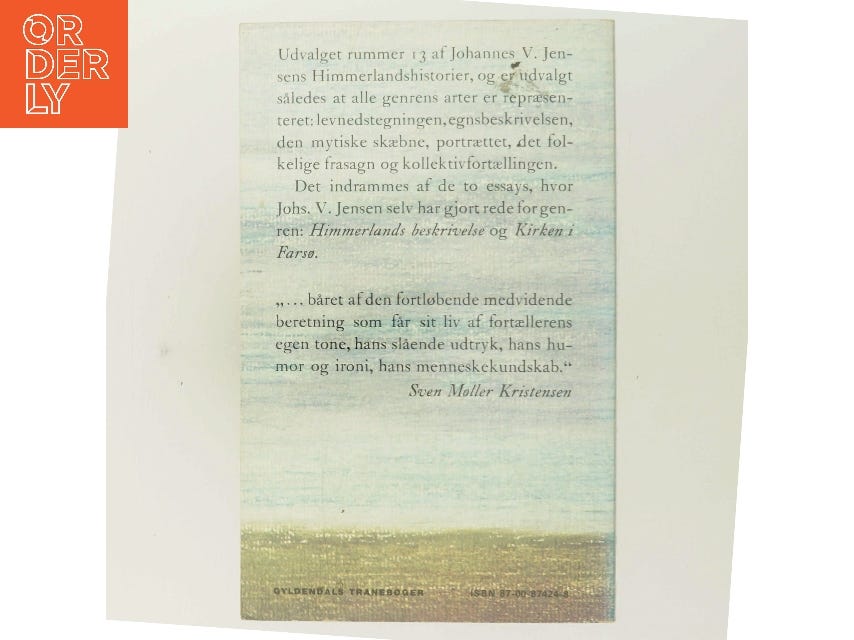 OR
DER
LY
Udvalget rummer 13 af Johannes V. Jen-
sens Himmerlandshistorier, og er udvalgt
således at alle genrens arter er repræsen-
teret: levnedstegningen, egnsbeskrivelsen,
den mytiske skæbne, portrættet, det fol-
kelige frasagn og kollektivfortællingen.
Det indrammes af de to essays, hvor
Johs. V. Jensen selv har gjort rede for gen-
ren: Himmerlands beskrivelse og Kirken i
Farsø.
„... båret af den fortløbende medvidende
beretning som får sit liv af fortællerens
egen tone, hans slående udtryk, hans hu-
mor og ironi, hans menneskekundskab.“
Sven Møller Kristensen
GYLDENDALS TRANEBØGER ISBN 87-00-87424-8